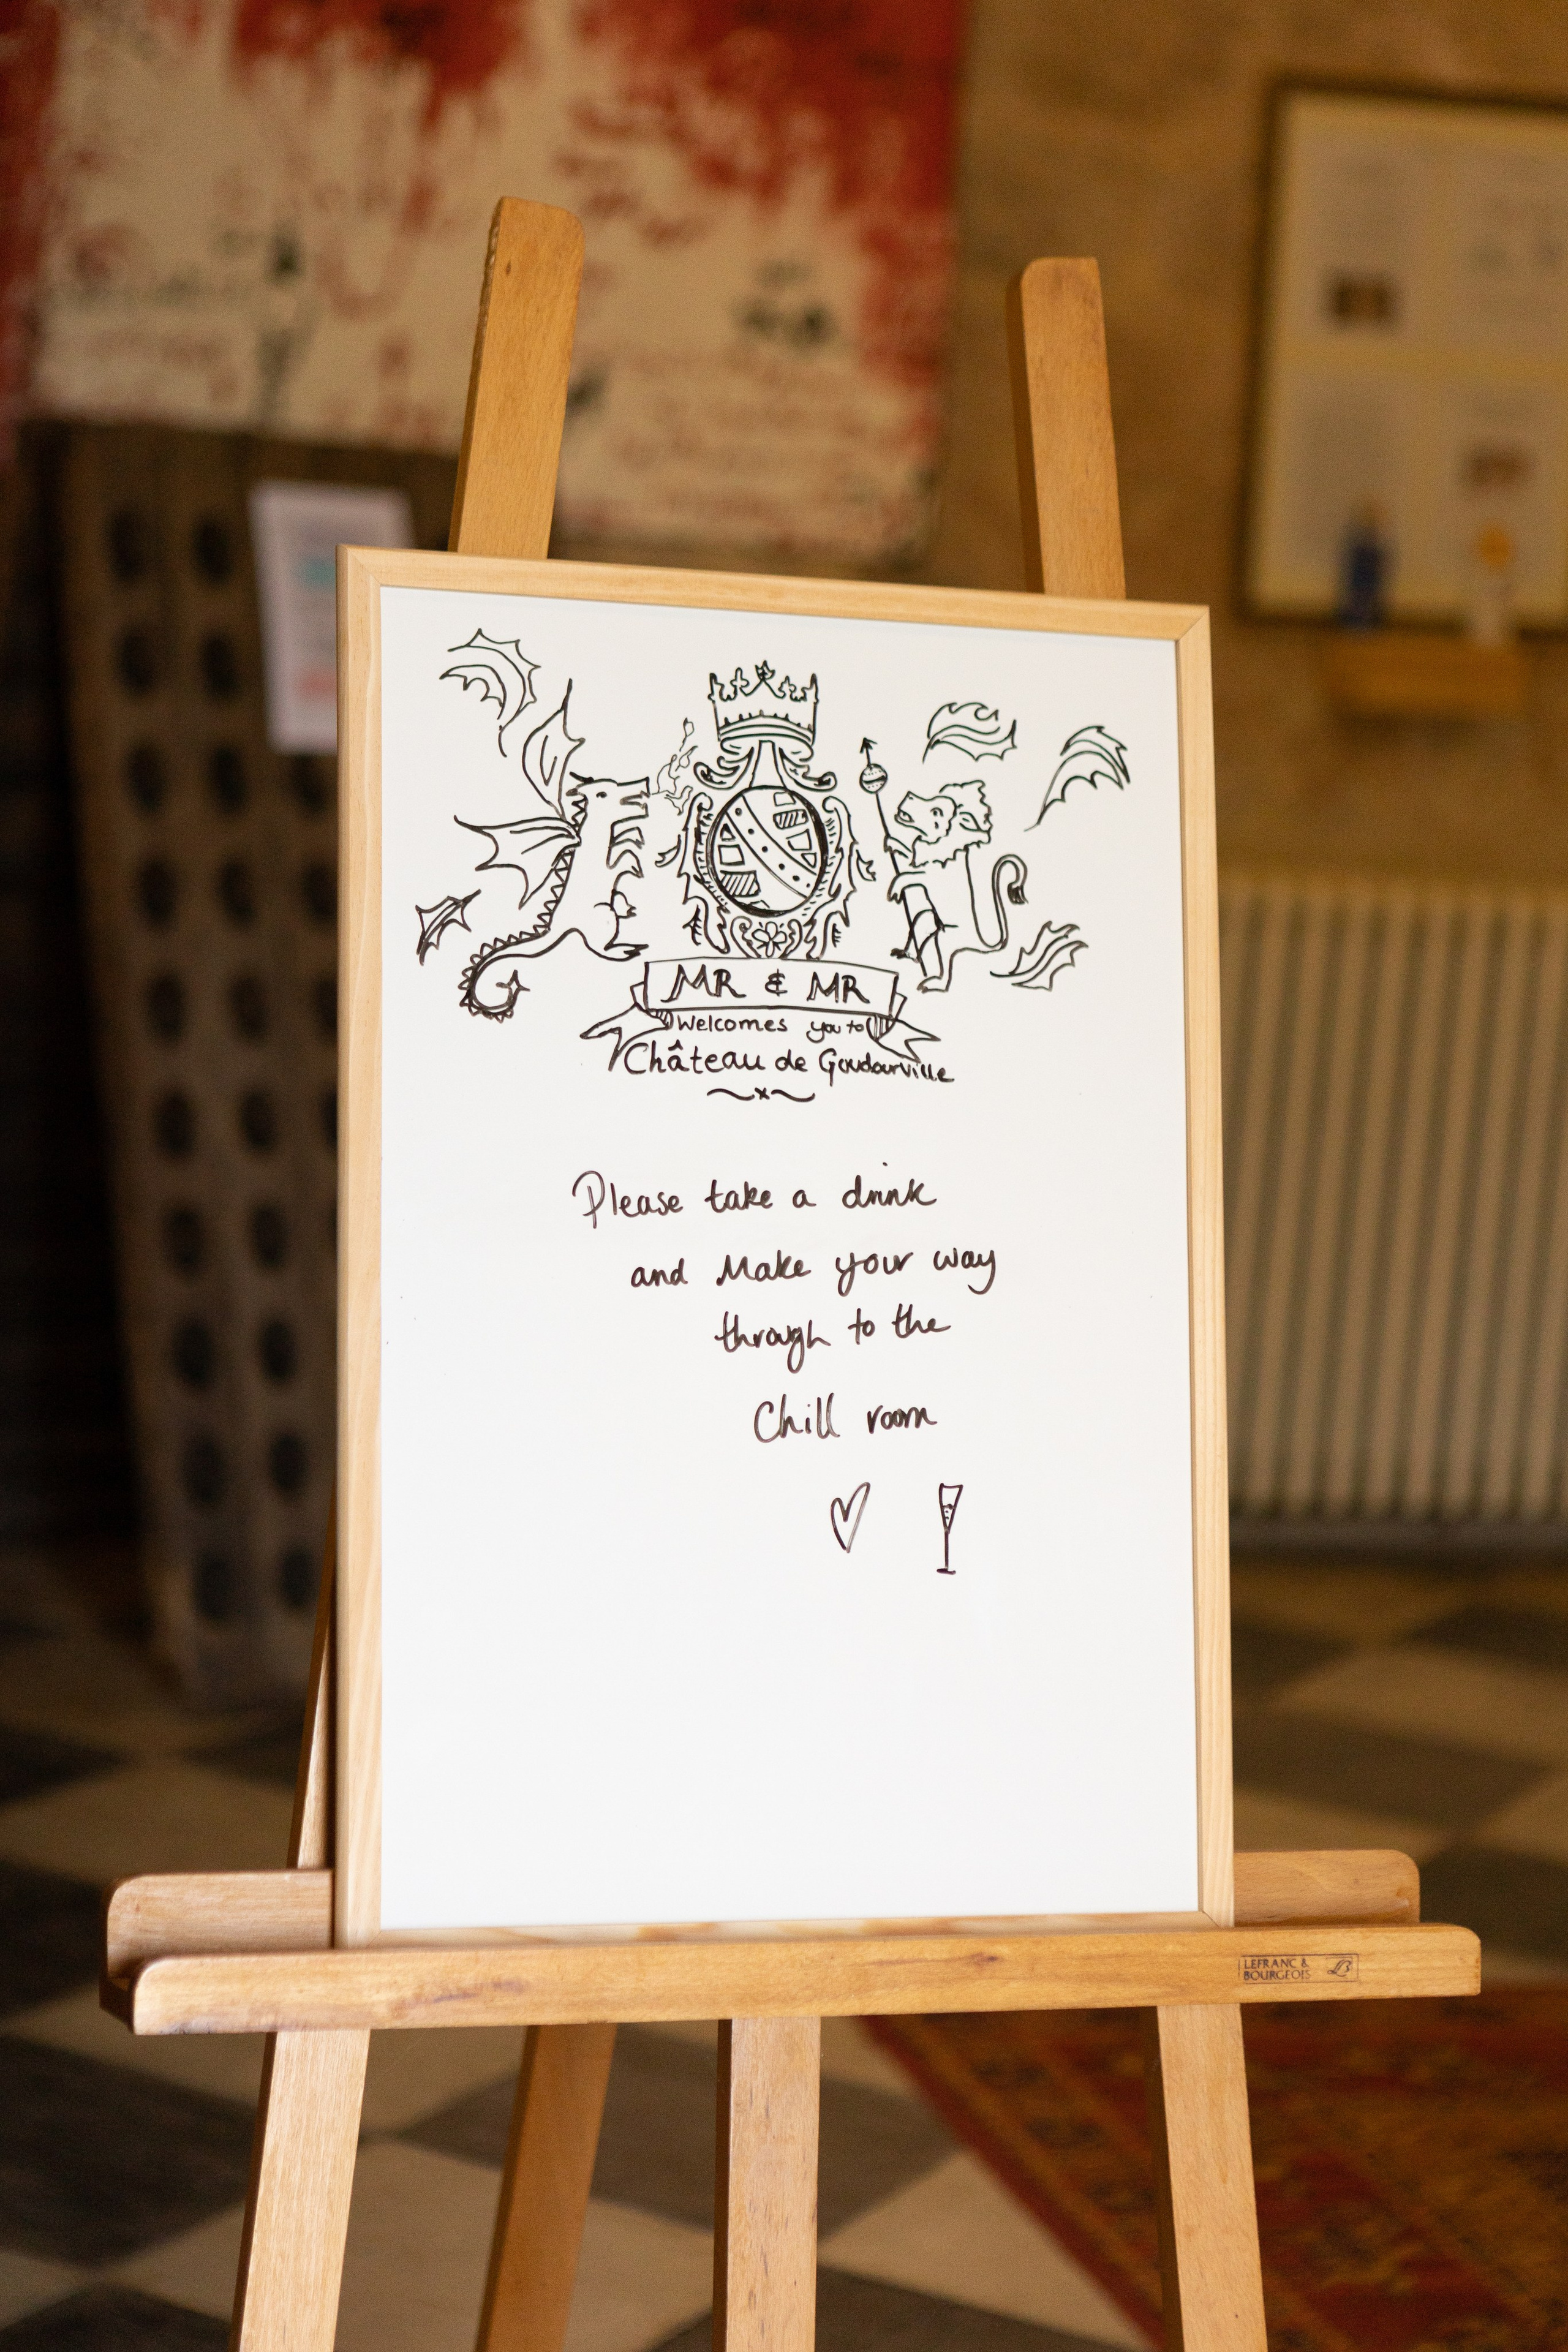 MR & MR
Welcomes you to
Château de Goudourville
Please take a drink
and Make your way
through to the
Chill room
LEFRANC &
BOURGEOIS LB